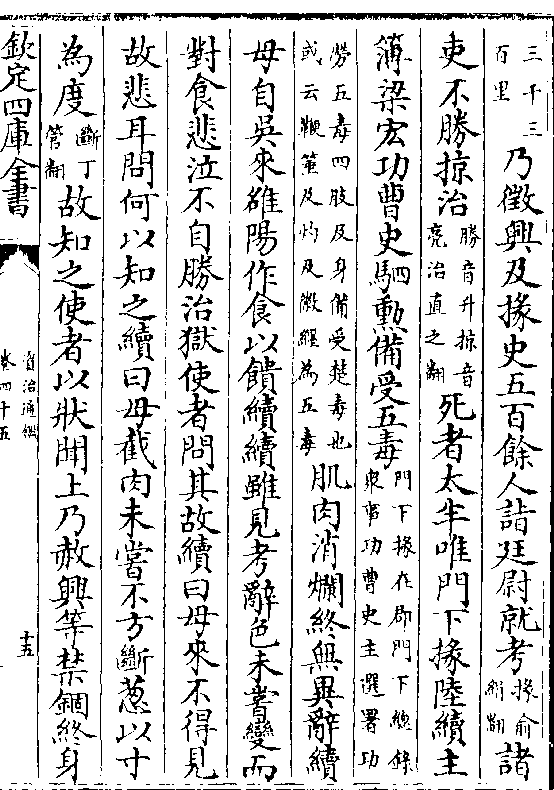 三千三百里乃徴興及掾史五百餘人詣廷尉就考掾俞絹翻諸
吏不勝掠治勝音升掠音亮治直之翻死者太半唯門下掾陸續主
簿梁宏功曹史駟勲備受五毒門下掾在郡門下總録衆事功曹史主選署功
勞五毒四肢及身備受楚毒也或云鞭箠及灼及徽纆為五毒肌肉消爛終無異辭續
母自吳來雒陽作食以饋續續雖見考辭色未嘗變而
對食悲泣不自勝治獄使者問其故續曰母來不得見
故悲耳問何以知之續曰母截肉未嘗不方斷葱以寸
為度斷丁管翻故知之使者以狀聞上乃赦興等禁錮終身
欽定四庫全書
資治通鑑
卷四十五
十五